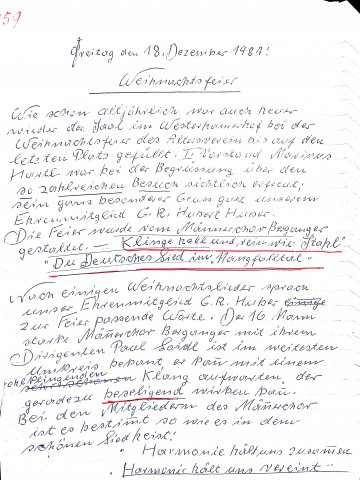 59
Freitag den 18. Dezember 1981!
Weihnachtsfeier
Wie schon alljährlich war auch heuer
wieder der Saal im Westerhamerhof bei der
Weihnachtsfeier des Altersverein bis auf den
letzten Platz gefüllt. I. Vorstand Marinus
Hartl war bei der Begrüssung über den
so zahlreichen Besuch sichtlich erfreut;
sein ganz besonderer Gruss galt unserem
Ehrenmitglied G.R. Hubert Huber.
Die Feier wurde vom Männerchor Berganger
gestaltet. — Klinge hell und rein wie Stahl
"Du Deutsches Lied im Mangfalltal"
Nach einigen Weihnachtslieder sprach
unser Ehrenmitglied G.R. Huber
zur Feier passende Worte. Der 16 Mann
starke Männerchor Berganger mit ihrem
Dirigenten Paul Seidl ist im weitesten
Umkreis bekannt, er kann mit einem
Klang aufwarten, der
geradezu beseligend wirken kann.
Bei den Mitgliedern des Männerchor
ist es bestimmt so wie es in dem
schönen Lied heist!
"Harmonie hält uns zusammen
Harmonie hält uns vereint"